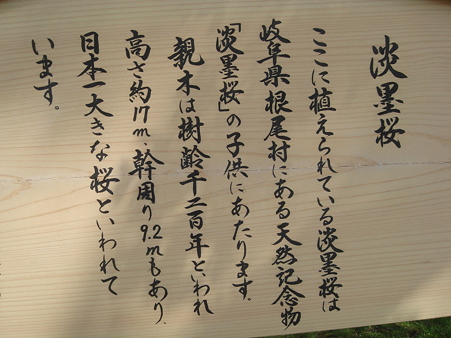 淡墨桜
ここに植えられている淡墨桜は
岐阜県根尾村にある天然記念物
「淡墨桜」の子供にあたります。
親木は樹齢千二百年といわれ
高さ約17m、幹周り9.2mもあり、
日本一大きな桜といわれて
います。